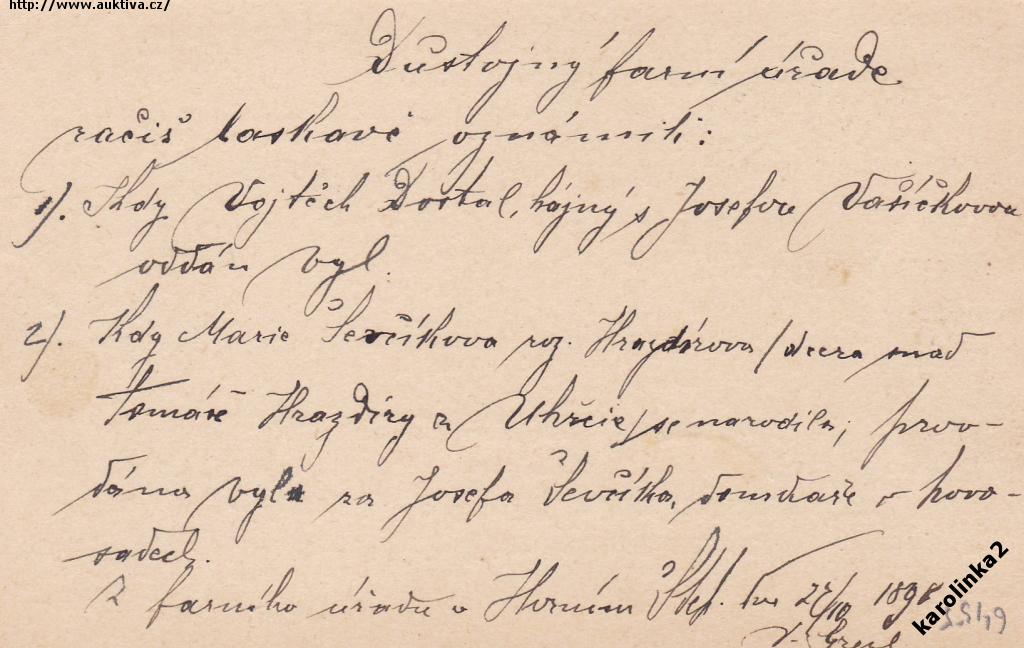 http://www.auktiva.cz/
Důstojný farní úřade
račiž laskavě oznámiti:
1). Kdy Vojtěch Dostal, hájný s Josefou Vašíčkovou
oddán byl.
2). Kdy Marie Ševčíkova roz. Hrazdírova /dcera snad
Tomáše Hrazdiry z Uhřic/ se narodila, provo-
dána byla za Josefa Ševčíka, domkaře v
sadech.
Z farního úřadu v Horním Štěp. dne 27/10 1898
karolinka2